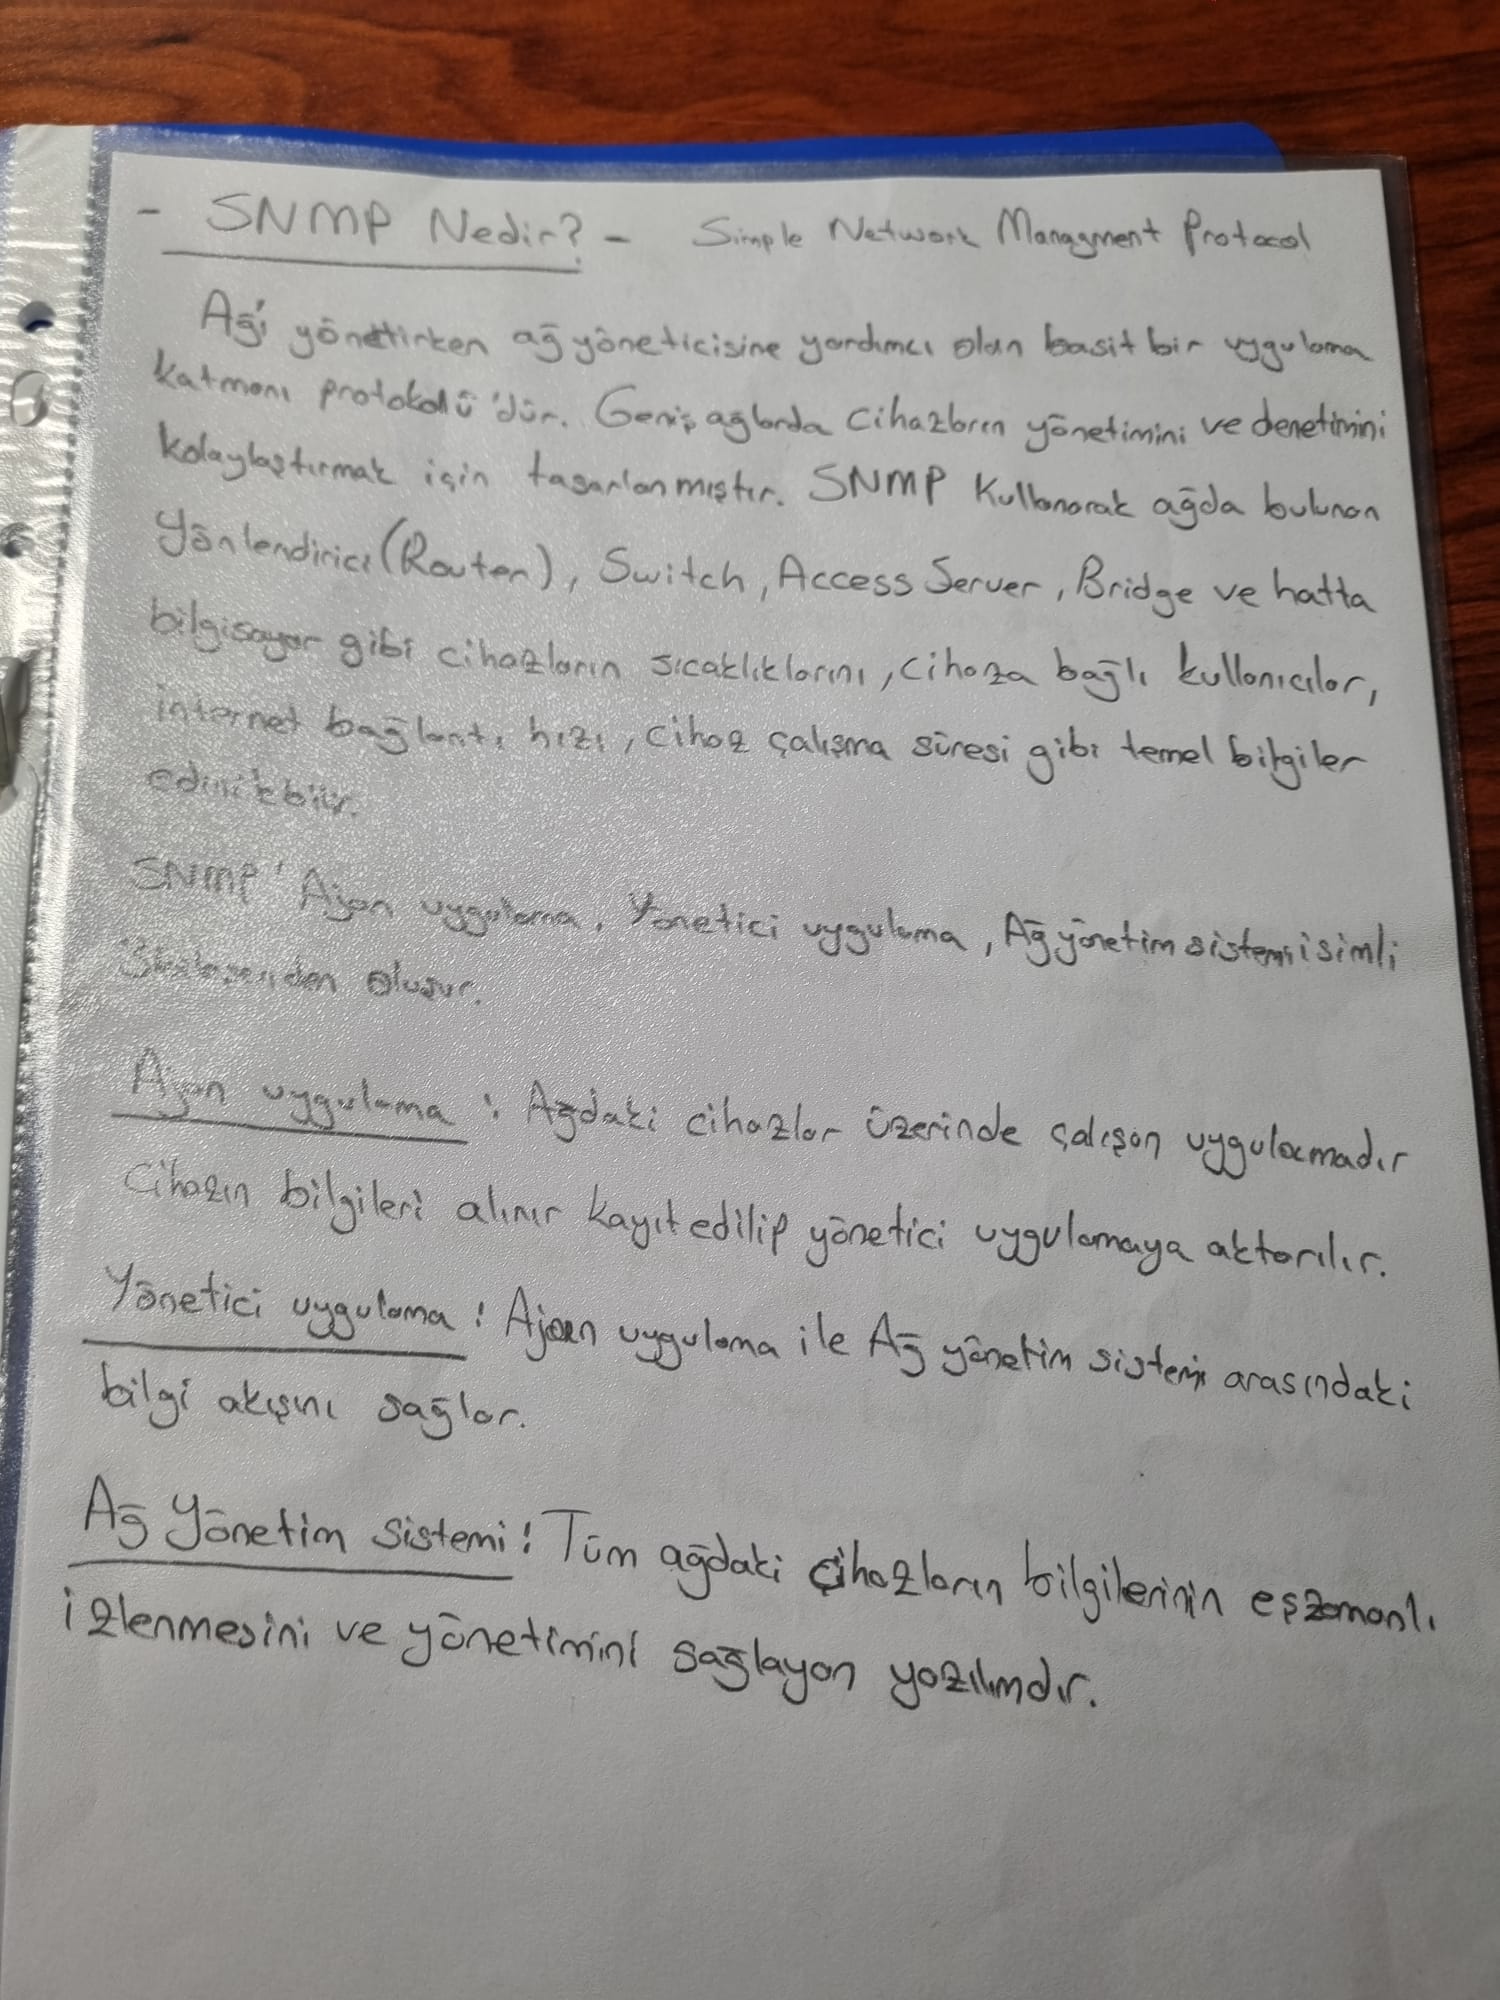 - SNMP Nedir? - Simple Network Managment Protocol
Ağ'ı yönetirken ağ yöneticisine yardımcı olan basit bir uygulama
katmanı protokolü'dür. Geniş ağlarda cihazların yönetimini ve denetimini
kolaylaştırmak için tasarlanmıştır. SNMP Kullanarak ağda bulunan
Yönlendirici (Router), Switch, Access Server, Bridge ve hatta
bilgisayar gibi cihazların sıcaklıklarını, cihaza bağlı kullanıcılar,
internet bağlantı hızı, cihaz çalışma süresi gibi temel bilgiler
edinilebilir.
SNMP' Ajan uygulama, Yönetici uygulama, Ağ yönetim sistemi isimli
oluşur.
Ajan uygulama : Ağdaki cihazlar üzerinde çalışan uygulamadır
Cihazın bilgileri alınır kayıt edilip yönetici uygulamaya aktarılır.
Yönetici uygulama : Ajan uygulama ile Ağ yönetim sistemi arasındaki
bilgi akışını sağlar.
Ağ Yönetim Sistemi : Tüm ağdaki cihazların bilgilerinin eşzamanlı
izlenmesini ve yönetimini sağlayan yazılımdır.